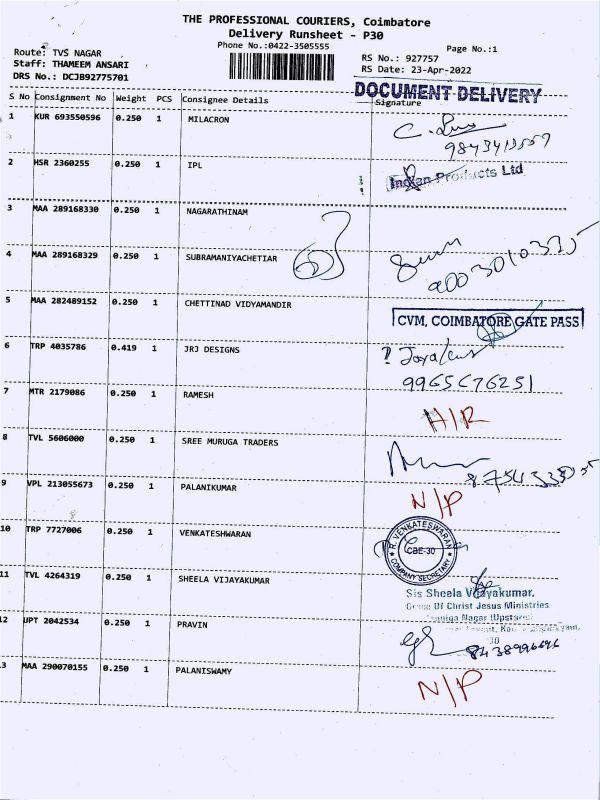 THE PROFESSIONAL COURIERS, Coimbatore
Delivery Runsheet - P30
Phone No.:0422-3505555
Page No.:1
Route: TVS NAGAR
Staff: THAMEEM ANSARI
DRS No.: DCJB92775701
RS No.: 927757
RS Date: 23-Apr-2022
DOCUMENT DELIVERY
S No Consignment No Weight PCS Consignee Details Signature
1 KUR 693550596 0.250 1 MILACRON
2 HSR 2360255 0.250 1 IPL
Indian Products Ltd
3 MAA 289168330 0.250 1 NAGARATHINAM
4 MAA 289168329 0.250 1 SUBRAMANIYACHETIAR
5 MAA 282489152 0.250 1 CHETTINAD VIDYAMANDIR
CVM, COIMBATORE GATE PASS
6 TRP 4035786 0.419 1 JRJ DESIGNS
9965676251
7 MTR 2179086 0.250 1 RAMESH
8 TVL 5606000 0.250 1 SREE MURUGA TRADERS
9 VPL 213055673 0.250 1 PALANIKUMAR
N/P
10 TRP 7727006 0.250 1 VENKATESHWARAN
R. VENKATESWARAN
CBE-30
COMPANY SECRETARY
11 TVL 4264319 0.250 1 SHEELA VIJAYAKUMAR
Sis Sheela Vijayakumar,
Grace Of Christ Jesus Ministries
Nagar (Upstairs)
12 UPT 2042534 0.250 1 PRAVIN
8438996696
13 MAA 290070155 0.250 1 PALANISWAMY
N/P